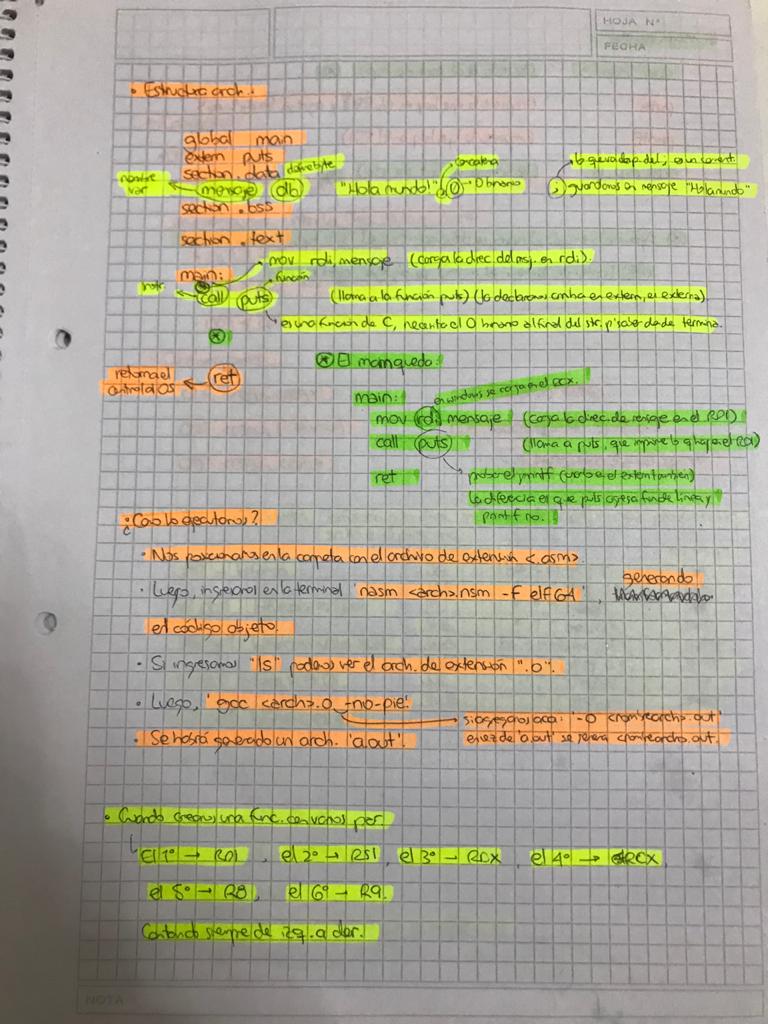 HOJA Nº
FECHA
• Estructura arch.
global main
extern puts
section .data define byte
nombre var
mensaje db "Hola mundo!", 0
concatena
0 binario
lo que va desp. del ; es un coment.
; guardamos en mensaje "Hola mundo"
section .bss
section .text
main:
mov rdi, mensaje (carga la direc. del msj. en rdi).
función
call puts (llama a la función puts) (la declaramos arriba en extern, es externa)
es una función de C, necesita el 0 binario al final del str. p/saber donde termina.
*
retorna el control al OS
ret
* El main quedo:
main:
en windows se carga en el RCX.
mov rdi, mensaje (carga la direc. de mensaje en el RDI)
call puts (llama a puts, que imprime lo q hay en el RDI)
ret
probar el printf (cambiar el extern también)
la diferencia es que puts agrega fin de línea y
printf no.
¿Como lo ejecutamos?
• Nos posicionamos en la carpeta con el archivo de extensión <.asm>.
• Luego, ingresamos en la terminal 'nasm <arch>.nsm -f elf64', generando
el código objeto.
• Si ingresamos "ls" podemos ver el arch. de extensión ".o".
• Luego, 'gcc <arch>.o -no-pie'.
si agregamos aca: '-o <nombrearch>.out'
en vez de 'a.out' se
<nombrearch>.out.
• Se habrá generado un arch. 'a.out'.
• Cuando creamos una func. con varios
El 1º → RDI, el 2º → RSI, el 3º → RDX, el 4º → RCX,
el 5º → R8, el 6º → R9.
Contando siempre de izq. a der.
NOTA